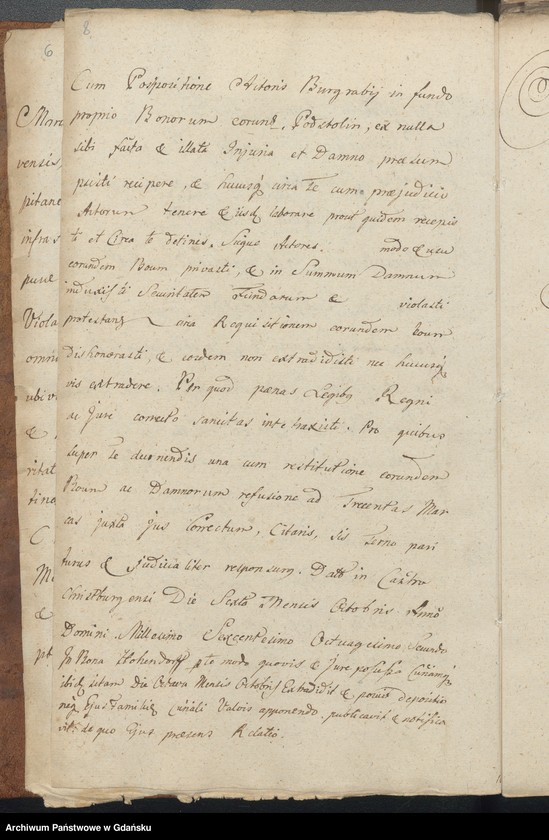 6
8
Cum Propositione Actoris Burgrabij in fundo
proprio Bonorum eorund., Podstolin, ex nulla
sibi facta & illata Injuria et Damno præsum
psisti recipere, & hucusq circa Te cum præjudicio
Actorum tenere & laborare prout quidem recepis
ti et Circa te detines, Suque Actores. modo & usu
eorundem Boum privasti, & in Summum Damnum
induxisti Securitatem Fundorum & violasti
protestans ina Requisitionem eorundem boum
Dishonorasti, & eosdem non extradidisti nec hucusq
vis extradere. Per quod pænas Legibus Regni
ac Jure correcto sancitas intetraxisti. Pro quibus
super Te decernendis una cum restitutione eorundem
Boum ac Damnorum refusione ad Trecentas Mar
cas juxta Jus Correctum, Citaris, sis Termo pari
turus & Judicialiter responsurg. Datt in Castro
Christburgensi Die Sexta Mensis Octobris Anno
Domini Millesimo Sexcentesimo Octuagesimo Secundo
In Bona Hohendorff modo quovis & Jure possessa Curiamq
ibidem sitam Die Octava Mensis Octobris Extradidit & penes depositio
nem Ejus Familiæ Curiali Valvis apponendo, publicavit & notifica
vit de quo Ejus præsens Relatio.
Mar
vensis,
pitane
infras
Viola
omni
ubi v
&
ritat
tino
C
M
&
pt
Archiwum Państwowe w Gdańsku